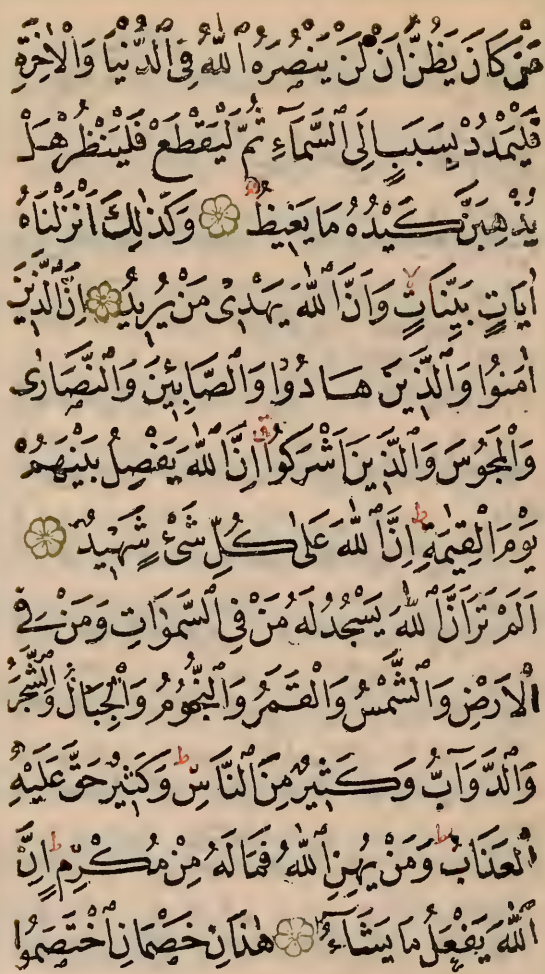 مَنْ كَانَ يَظُنُّ اَنْ لَنْ يَنْصُرَهُ ٱللّٰهُ فِى ٱلدُّنْيَا وَٱلْاٰخِرَةِ
فَلْيَمْدُدْ بِسَبَبٍ اِلَى ٱلسَّمَآءِ ثُمَّ لْيَقْطَعْ فَلْيَنْظُرْ هَلْ
يُذْهِبَنَّ كَيْدُهُ مَا يَغِيظُ وَكَذٰلِكَ اَنْزَلْنَاهُ
اٰيَاتٍ بَيِّنَاتٍ وَاَنَّ ٱللّٰهَ يَهْدِى مَنْ يُرِيدُ اِنَّ ٱلَّذِينَ
اٰمَنُوا وَٱلَّذِينَ هَادُوا وَٱلصَّابِئِينَ وَٱلنَّصَارٰى
وَٱلْمَجُوسَ وَٱلَّذِينَ اَشْرَكُوا اِنَّ ٱللّٰهَ يَفْصِلُ بَيْنَهُمْ
يَوْمَ ٱلْقِيٰمَةِ ط اِنَّ ٱللّٰهَ عَلٰى كُلِّ شَىْءٍ شَهِيدٌ
اَلَمْ تَرَ اَنَّ ٱللّٰهَ يَسْجُدُ لَهُ مَنْ فِى ٱلسَّمٰوَاتِ وَمَنْ فِى
ٱلْاَرْضِ وَٱلشَّمْسُ وَٱلْقَمَرُ وَٱلنُّجُومُ وَٱلْجِبَالُ وَٱلشَّجَرُ
وَٱلدَّوَآبُّ وَكَثِيرٌ مِنَ ٱلنَّاسِ ط وَكَثِيرٌ حَقَّ عَلَيْهِ
ٱلْعَذَابُ ط وَمَنْ يُهِنِ ٱللّٰهُ فَمَا لَهُ مِنْ مُكْرِمٍ ط اِنَّ
ٱللّٰهَ يَفْعَلُ مَا يَشَآءُ هٰذَانِ خَصْمَانِ ٱخْتَصَمُوا